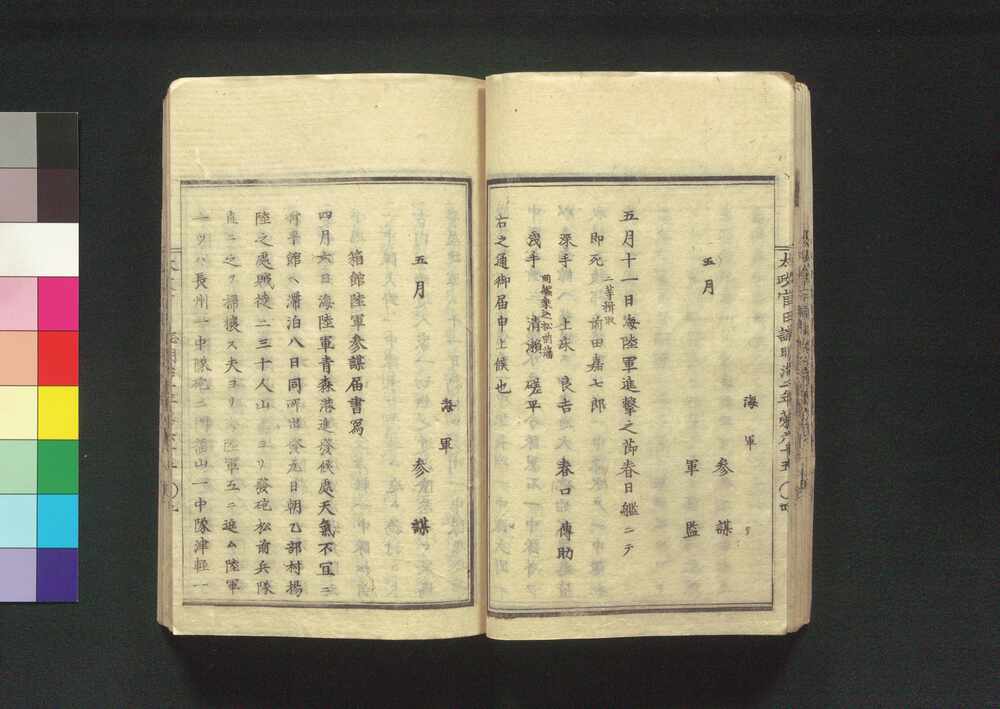 海軍
五月 参謀
軍監
五月十一日海陸軍進撃之節春日艦ニテ
二等揖取
即死 前田嘉七郎
深手 上床良吉 春口傳助
同艦乗込松前藩
浅手 清瀬磋平
右之通御届申上候也
海軍
五月 参謀
箱館陸軍参謀届書写
四月六日海陸軍青森港進發候處天氣不宜ニ
付平館ヘ滞泊八日同所出發九日朝乙部村揚
陸之處賊徒二三十人山ヨリ發砲松前兵隊
直ニ之ヲ掃攘ス夫ヨリ陸軍五ニ進ム陸軍
一ツハ長州一中隊砲二門福山一中隊津輕一
太政官日誌明治二年第六十五